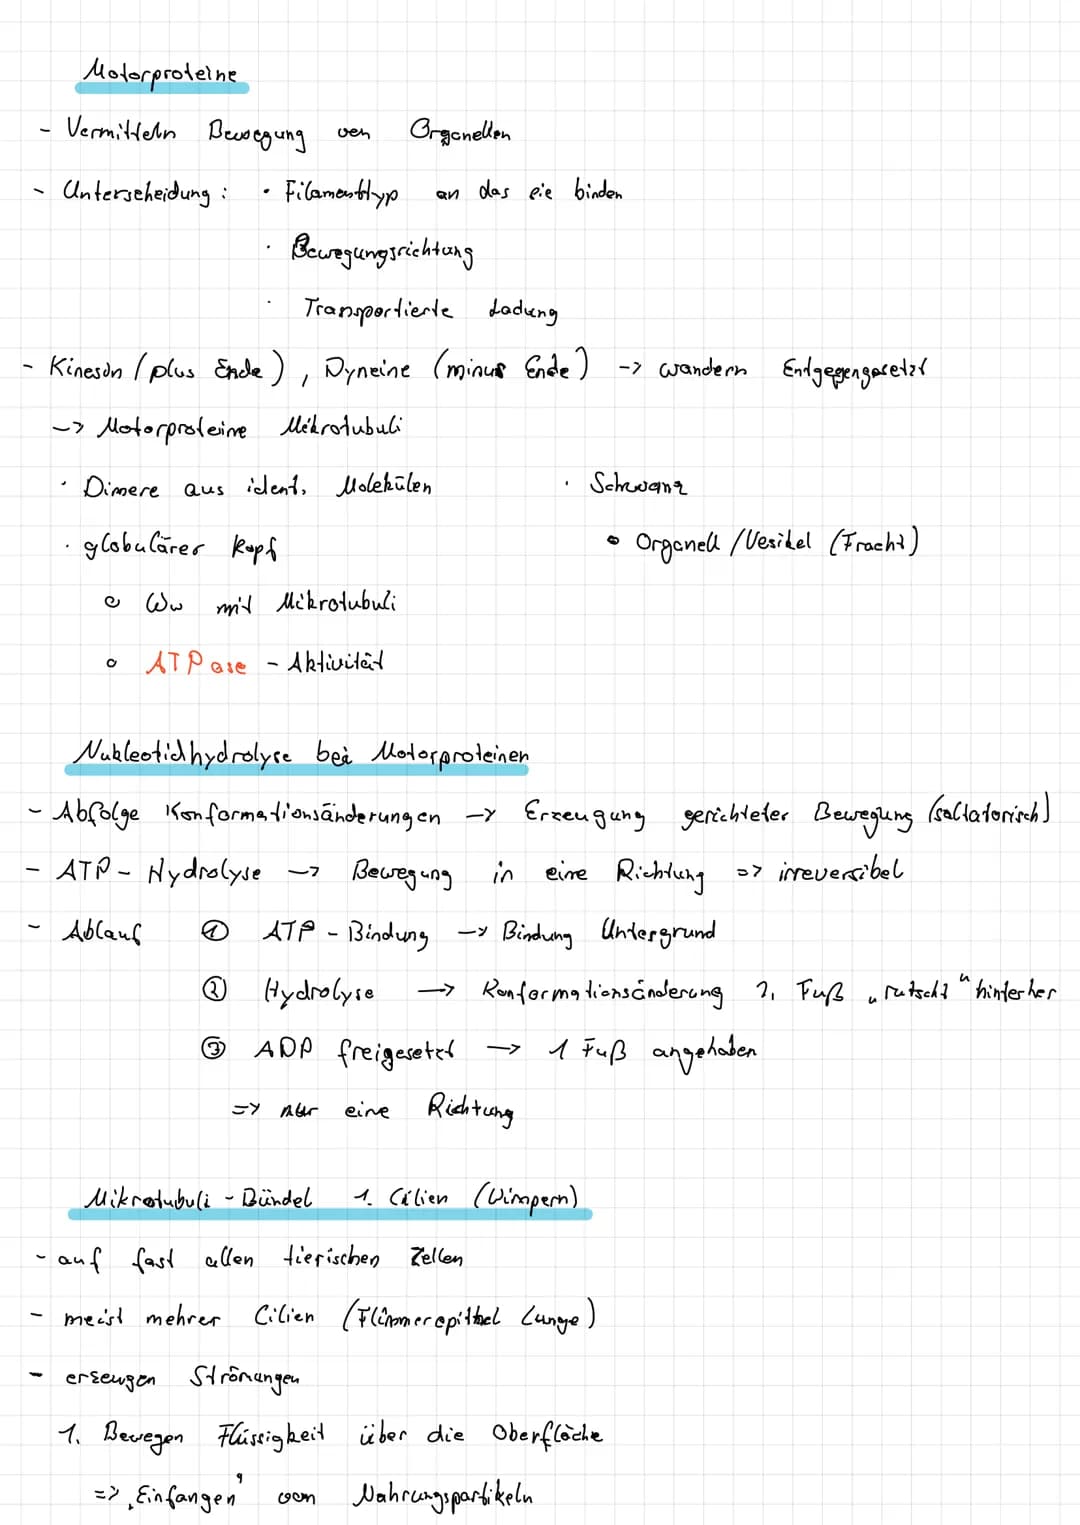 Motorproteine
- Vermitteln Bewegung von Organellen
- Unterscheidung : • Filamenttyp an das sie binden
• Bewegungsrichtung
• Transportierte Ladung
- Kinesin (plus Ende), Dyneine (minus Ende) -> wandern Entgegengesetzt
-> Motorproteine Mikrotubuli
• Dimere aus ident. Molekülen
• globulärer Kopf
o Ww mit Mikrotubuli
o ATPase - Aktivität
• Schwanz
o Organell / Vesikel (Fracht)
Nukleotidhydrolyse bei Motorproteinen
- Abfolge Konformationsänderungen -> Erzeugung gerichteter Bewegung (saltatorisch)
- ATP - Hydrolyse -> Bewegung in eine Richtung => irreversibel
- Ablauf ① ATP - Bindung -> Bindung Untergrund
② Hydrolyse -> Konformationsänderung 2. Fuß „rutscht“ hinterher
③ ADP freigesetzt -> 1 Fuß angehoben
=> nur eine Richtung
Mikrotubuli - Bündel 1. Cilien (Wimpern)
- auf fast allen tierischen Zellen
- meist mehrer Cilien (Flimmerepithel Lunge)
- erzeugen Strömungen
1. Bewegen Flüssigkeit über die Oberfläche
=> ‚Einfangen‘ von Nahrungspartikeln